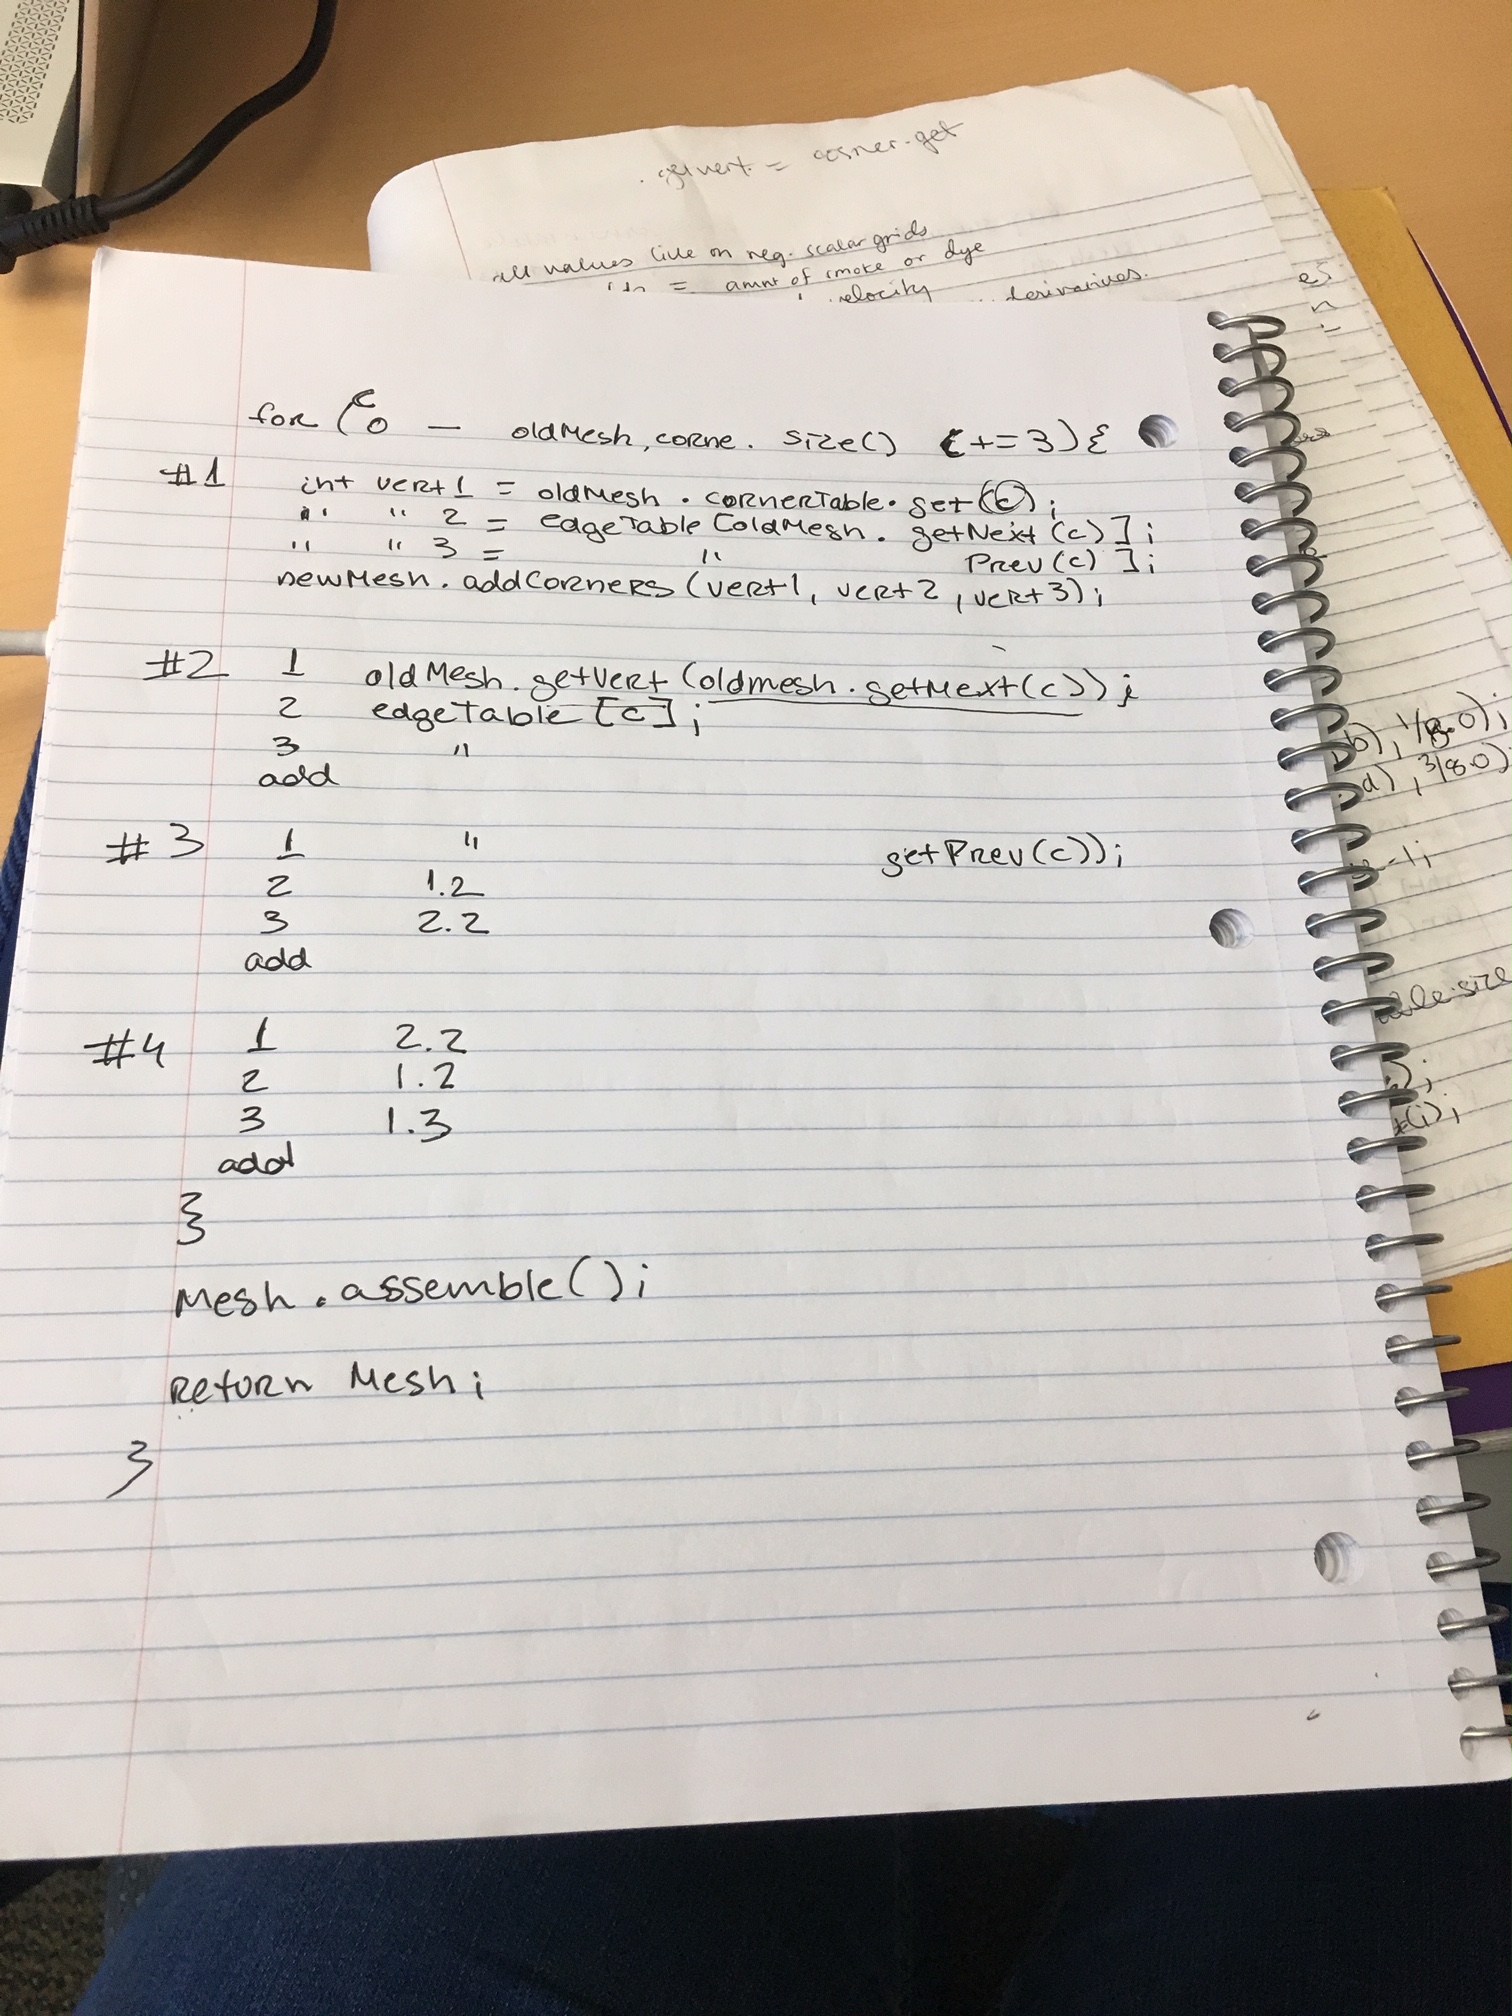 getvert. = corner.get
all values live on neg. scalar grids
= amnt of smoke or dye
velocity derivatives.
for (c 0 — oldMesh, corne. size() c+=3){
#1
int vert1 = oldMesh . cornerTable. get(c);
" " 2 = edgeTable [oldMesh . getNext (c) ];
" " 3 = " Prev(c) ];
newMesh. addCorners (vert1, vert2, vert3);
#2 1 oldMesh. getVert (oldmesh. getNext(c));
2 edgeTable [c];
3 "
add
#3 1 " getPrev(c));
2 1.2
3 2.2
add
#4 1 2.2
2 1.2
3 1.3
add
}
Mesh . assemble();
return Mesh;
}
b), 1/8.0);
d), 3/8.0)
-1;
size
);
(i);